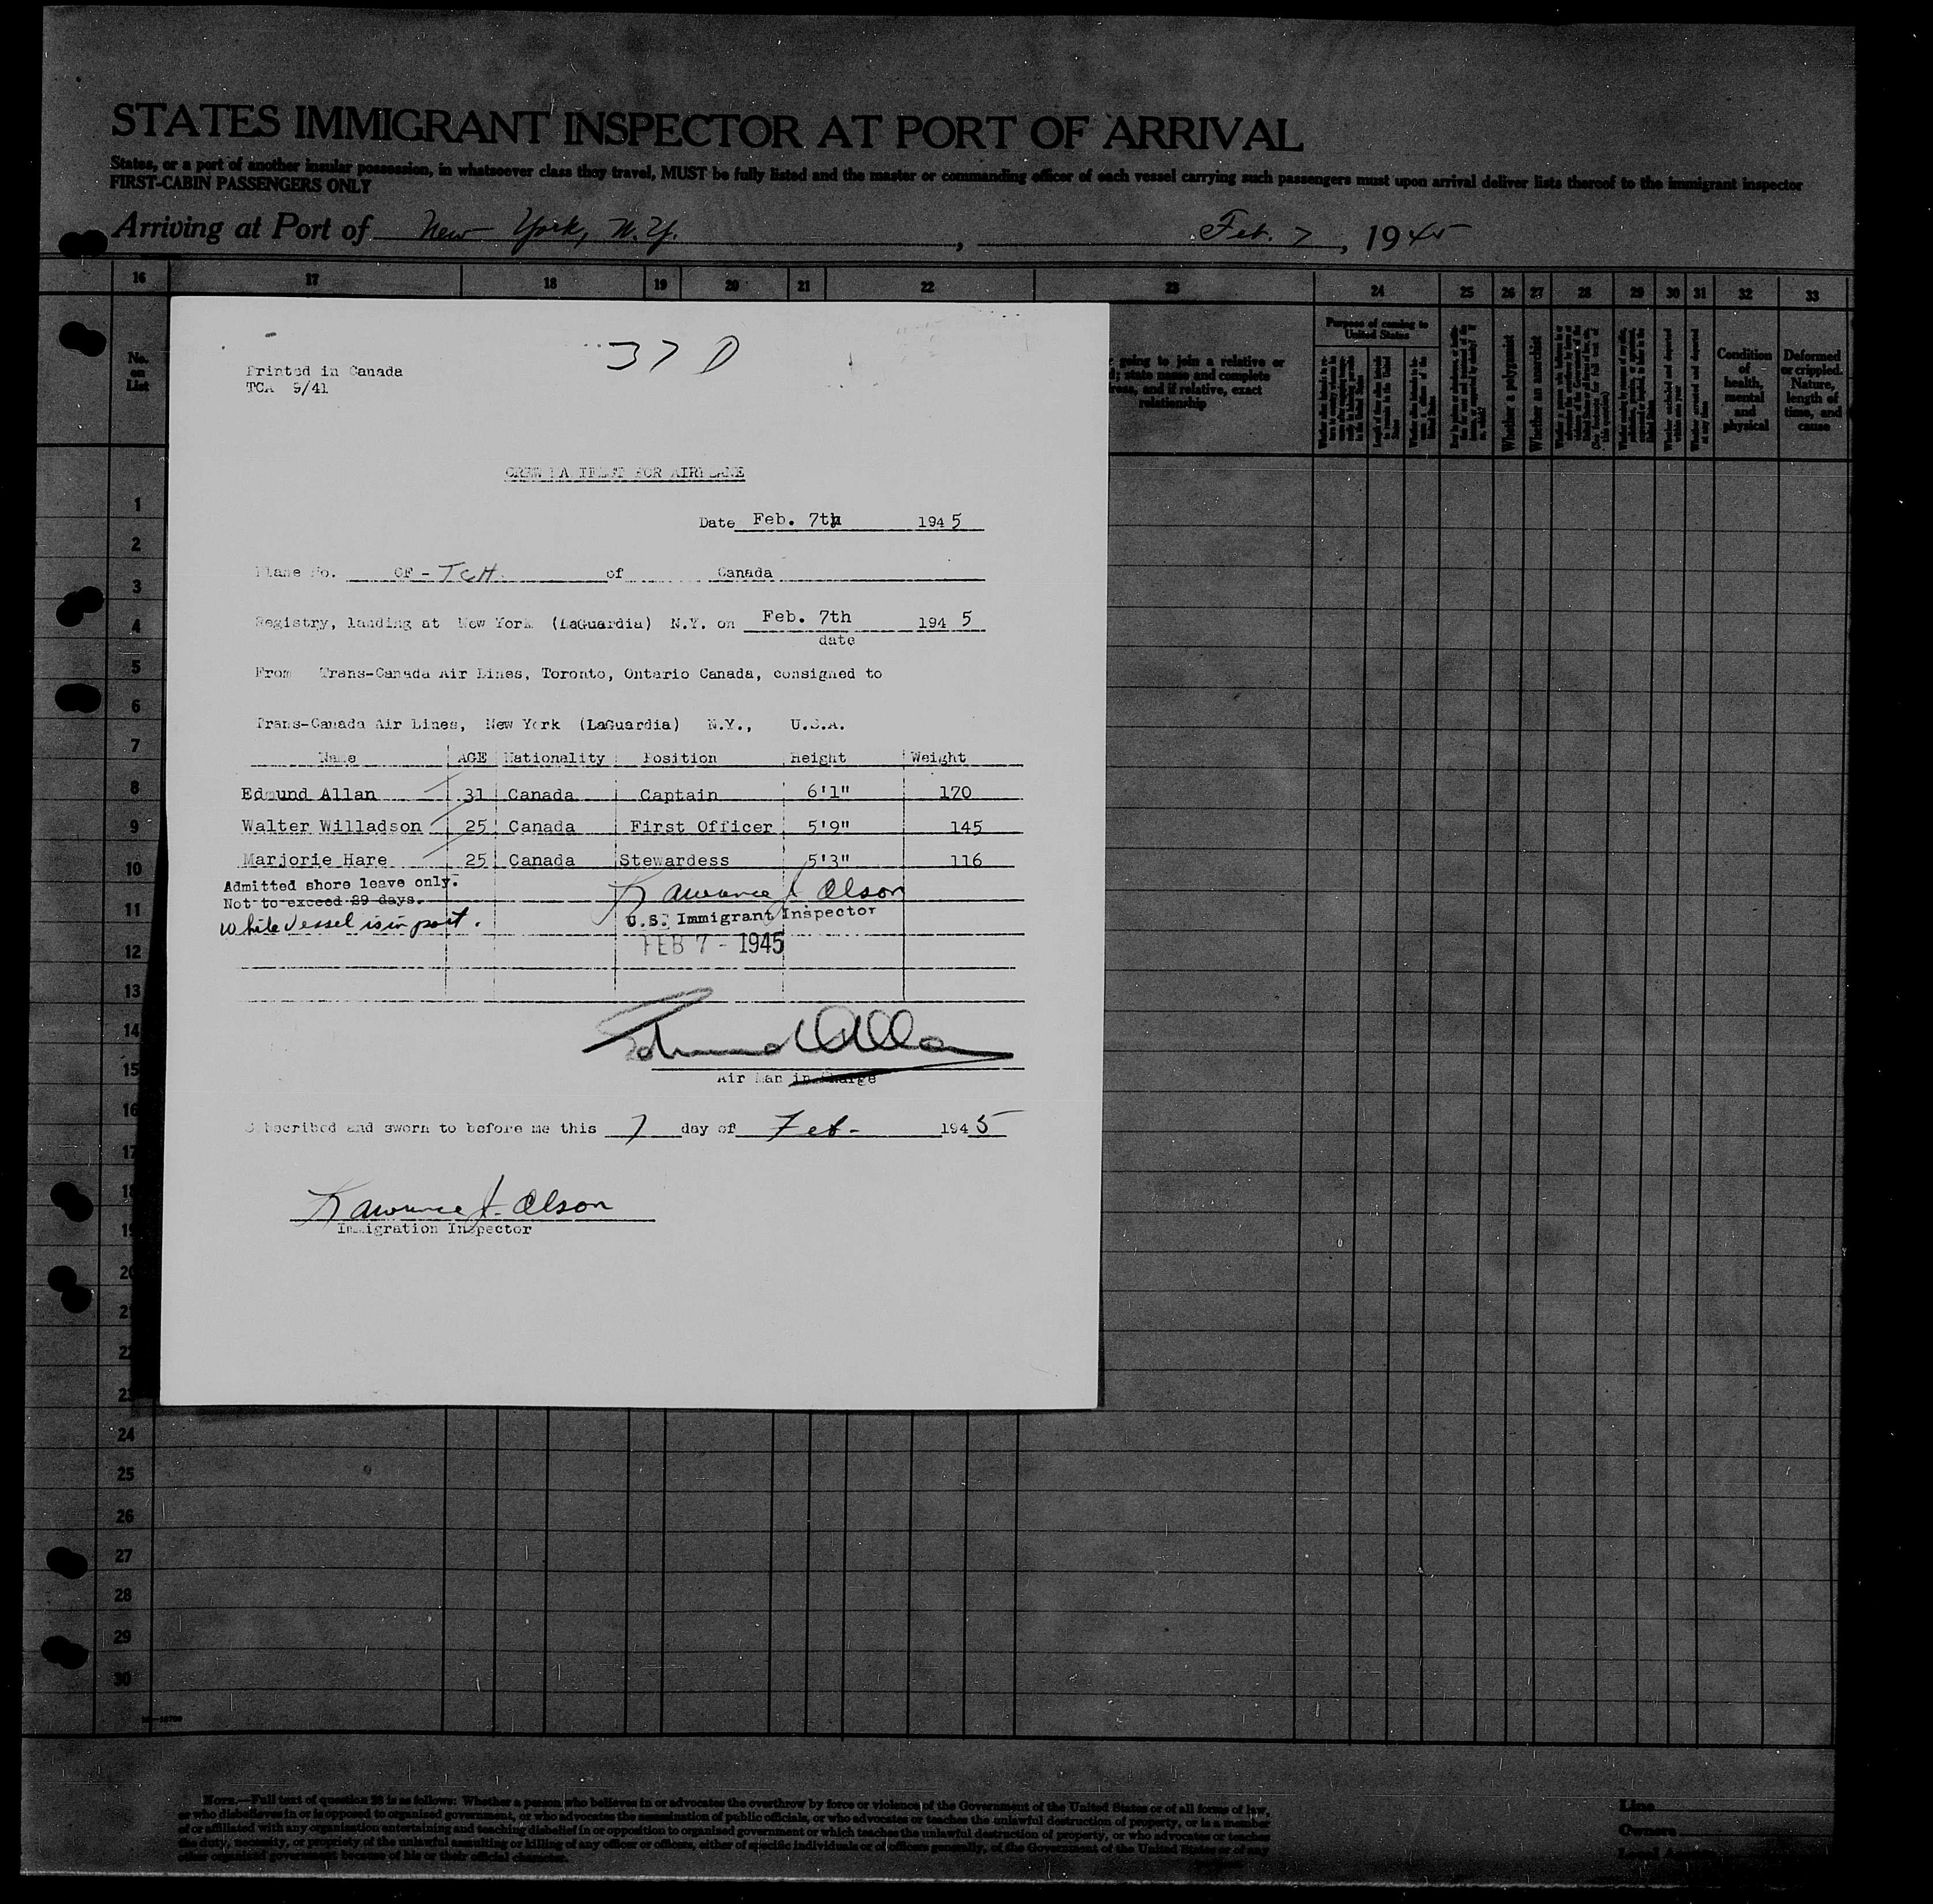 STATES IMMIGRANT INSPECTOR AT PORT OF ARRIVAL
States, or a port of another insular possession, in whatsoever class they travel, MUST be fully listed and the master or commanding officer of each vessel carrying such passengers must upon arrival deliver lists thereof to the immigrant inspector
FIRST-CABIN PASSENGERS ONLY
Arriving at Port of New York, N.Y. , Feb. 7, 1945
16 17 18 19 20 21 22 23 24 25 26 27 28 29 30 31 32 33
No. on List
going to join a relative or
state name and complete
and if relative, exact
relationship
Purpose of coming to United States
Whether a polygamist
Whether an anarchist
Condition of health, mental and physical
Deformed or crippled. Nature, length of time, and cause
37 D
Printed in Canada
TCA 9/41
CREW MANIFEST FOR AIRPLANE
Date Feb. 7th 1945
Plane No. CF-TCH of Canada
Registry, landing at New York (LaGuardia) N.Y. on Feb. 7th 1945
date
From Trans-Canada Air Lines, Toronto, Ontario Canada, consigned to
Trans-Canada Air Lines, New York (LaGuardia) N.Y., U.S.A.
Name AGE Nationality Position Height Weight
Edmund Allan 31 Canada Captain 6'1" 170
Walter Willadson 25 Canada First Officer 5'9" 145
Marjorie Hare 25 Canada Stewardess 5'3" 116
Admitted shore leave only.
Not to exceed 29 days.
While vessel is in port.
Lawrence J. Olson
U.S. Immigrant Inspector
FEB 7 - 1945
Edmund Allan
Air Man in Charge
Subscribed and sworn to before me this 7 day of Feb- 1945
Lawrence J. Olson
Immigration Inspector
1
2
3
4
5
6
7
8
9
10
11
12
13
14
15
16
17
18
19
20
21
22
23
24
25
26
27
28
29
30
NOTE.—Full text of question 28 is as follows: Whether a person who believes in or advocates the overthrow by force or violence of the Government of the United States or of all forms of law,
or who disbelieves in or is opposed to organized government, or who advocates the assassination of public officials, or who advocates or teaches the unlawful destruction of property, or is a member
of or affiliated with any organization entertaining and teaching disbelief in or opposition to organized government or which teaches the unlawful destruction of property, or who advocates or teaches
the duty, necessity, or propriety of the unlawful assaulting or killing of any officer or officers, either of specific individuals or of officers generally, of the Government of the United States or of any
other organized government because of his or their official character.
Line
Owners